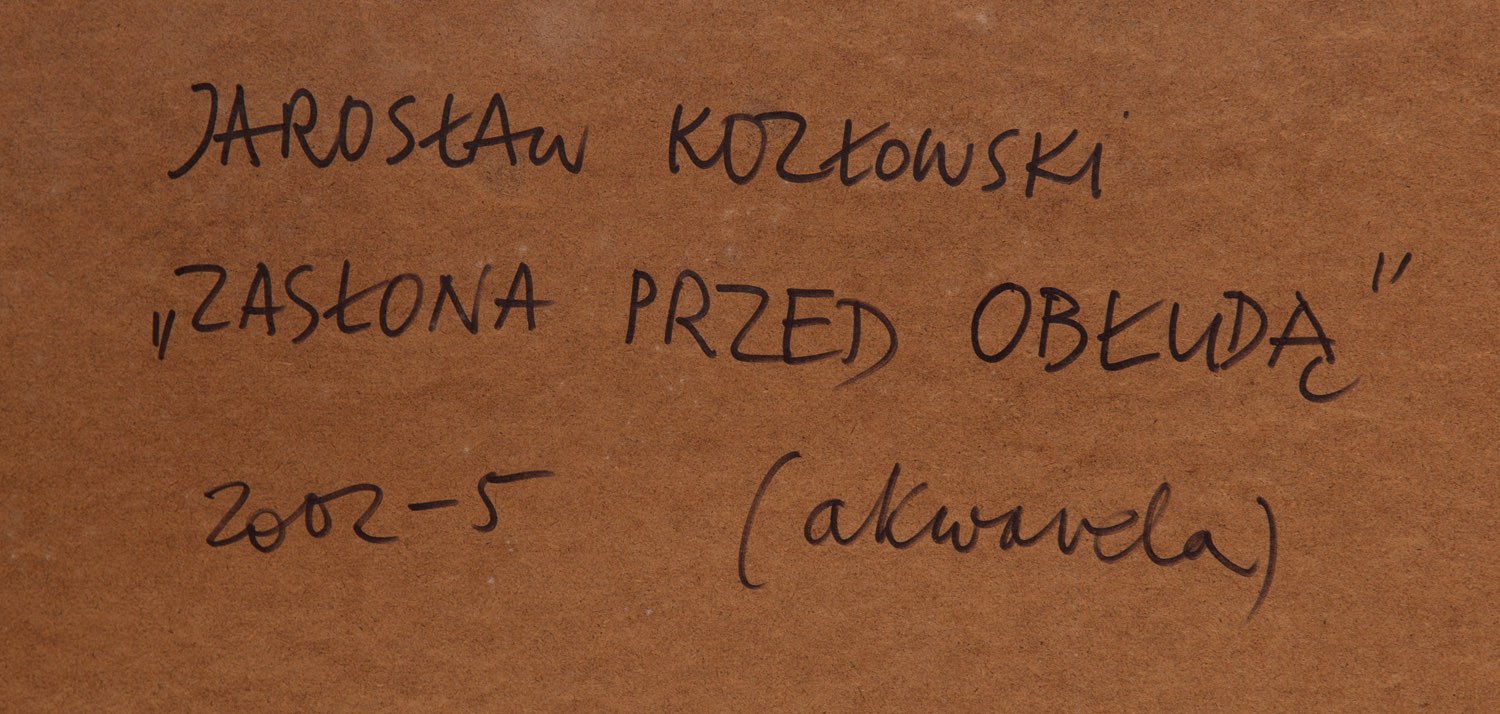 JAROSŁAW KOZŁOWSKI
„ZASŁONA PRZED OBŁUDĄ"
2002-5 (akwarela)